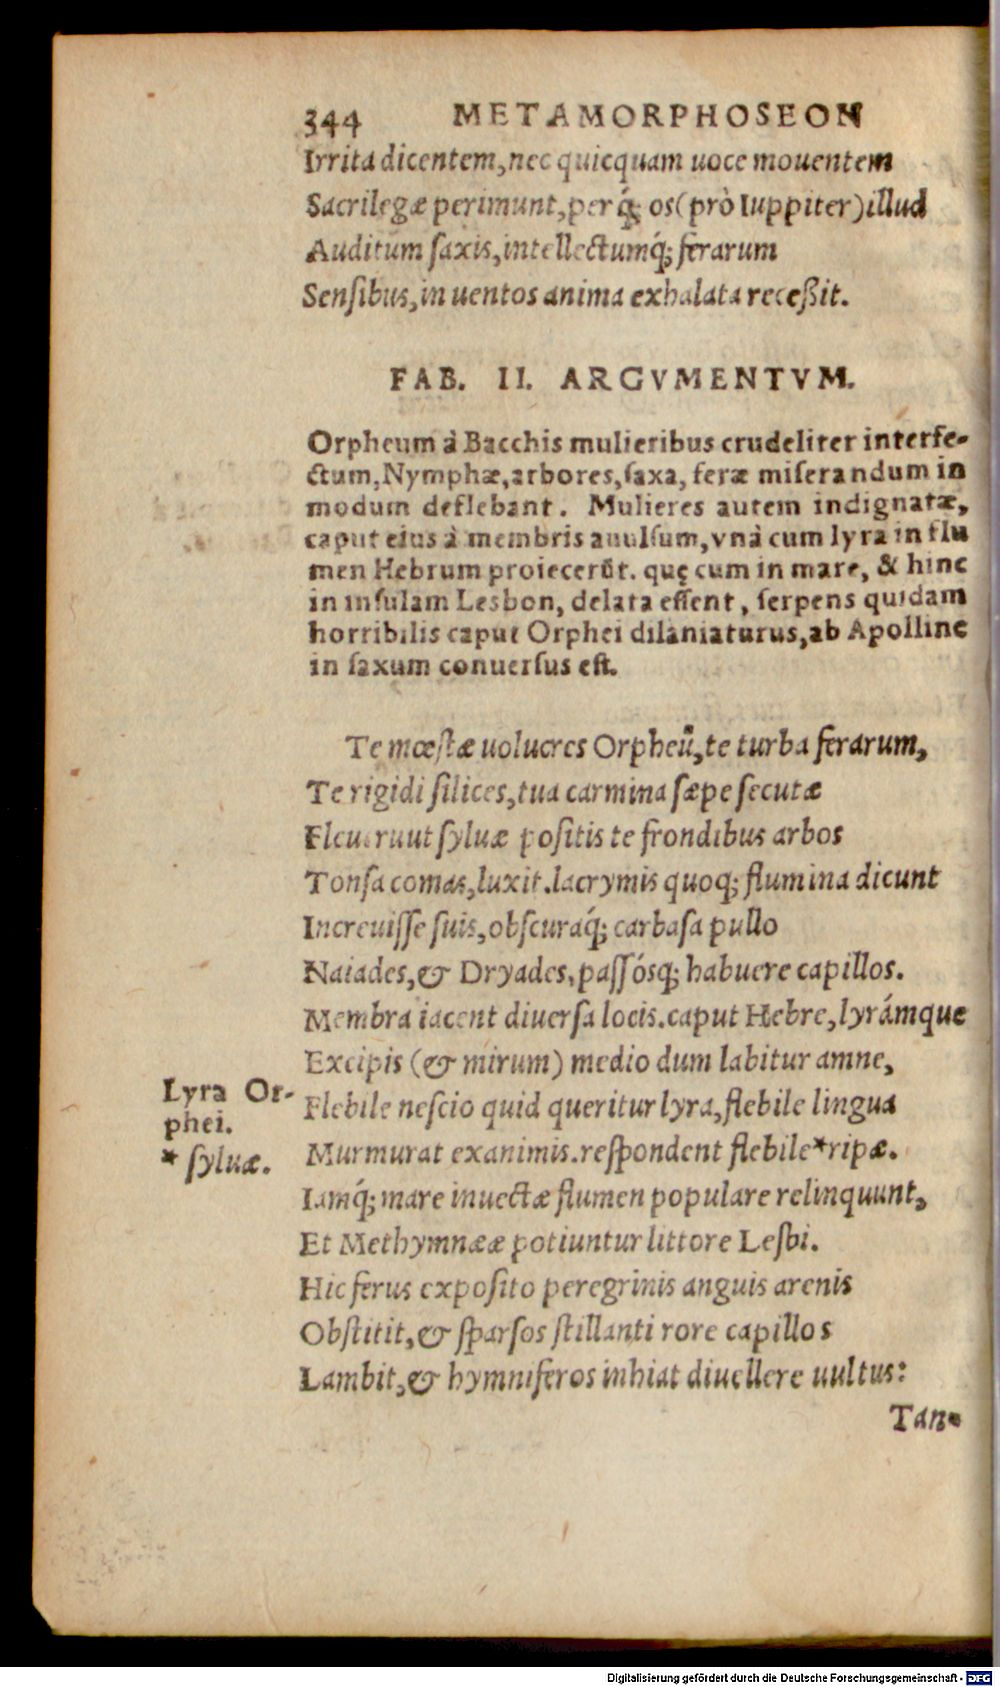 344 METAMORPHOSEON
Irrita dicentem, nec quicquam uoce mouentem
Sacrilegæ perimunt, per q́; os (prò Iuppiter) illud
Auditum ſaxis, intellectumq́; ferarum
Senſibus, in uentos anima exhalata receßit.
FAB. II. ARGVMENTVM.
Orpheum à Bacchis mulieribus crudeliter interfe-
ctum, Nymphæ, arbores, ſaxa, feræ miſerandum in
modum deflebant. Mulieres autem indignatæ,
caput eius à membris auulſum, vnà cum lyra in flu
men Hebrum proiecerũt. quę cum in mare, & hinc
in inſulam Lesbon, delata eſſent, ſerpens quidam
horribilis caput Orphei dilaniaturus, ab Apolline
in ſaxum conuerſus eſt.
Te mœſtæ uolucres Orpheũ, te turba ferarum,
Te rigidi ſilices, tua carmina ſæpe ſecutæ
Fleueruut ſyluæ poſitis te frondibus arbos
Tonſa comas, luxit. lacrymis quoq; flumina dicunt
Increuiſſe ſuis, obſcuraq́; carbaſa pullo
Naiades, & Dryades, paſſósq; habuere capillos.
Membra iacent diuerſa locis. caput Hebre, lyrámque
Excipis (& mirum) medio dum labitur amne,
Lyra Or-
phei.
Flebile neſcio quid queritur lyra, flebile lingua
Murmurat exanimis. reſpondent flebile *ripæ.
* ſyluæ.
Iamq́; mare inuectæ flumen populare relinquunt,
Et Methymnææ potiuntur littore Leſbi.
Hic ferus expoſito peregrinis anguis arenis
Obſtitit, & ſparſos ſtillanti rore capillos
Lambit, & hymniferos inhiat diuellere uultus:
Tan-
Digitalisierung gefördert durch die Deutsche Forschungsgemeinschaft - DFG